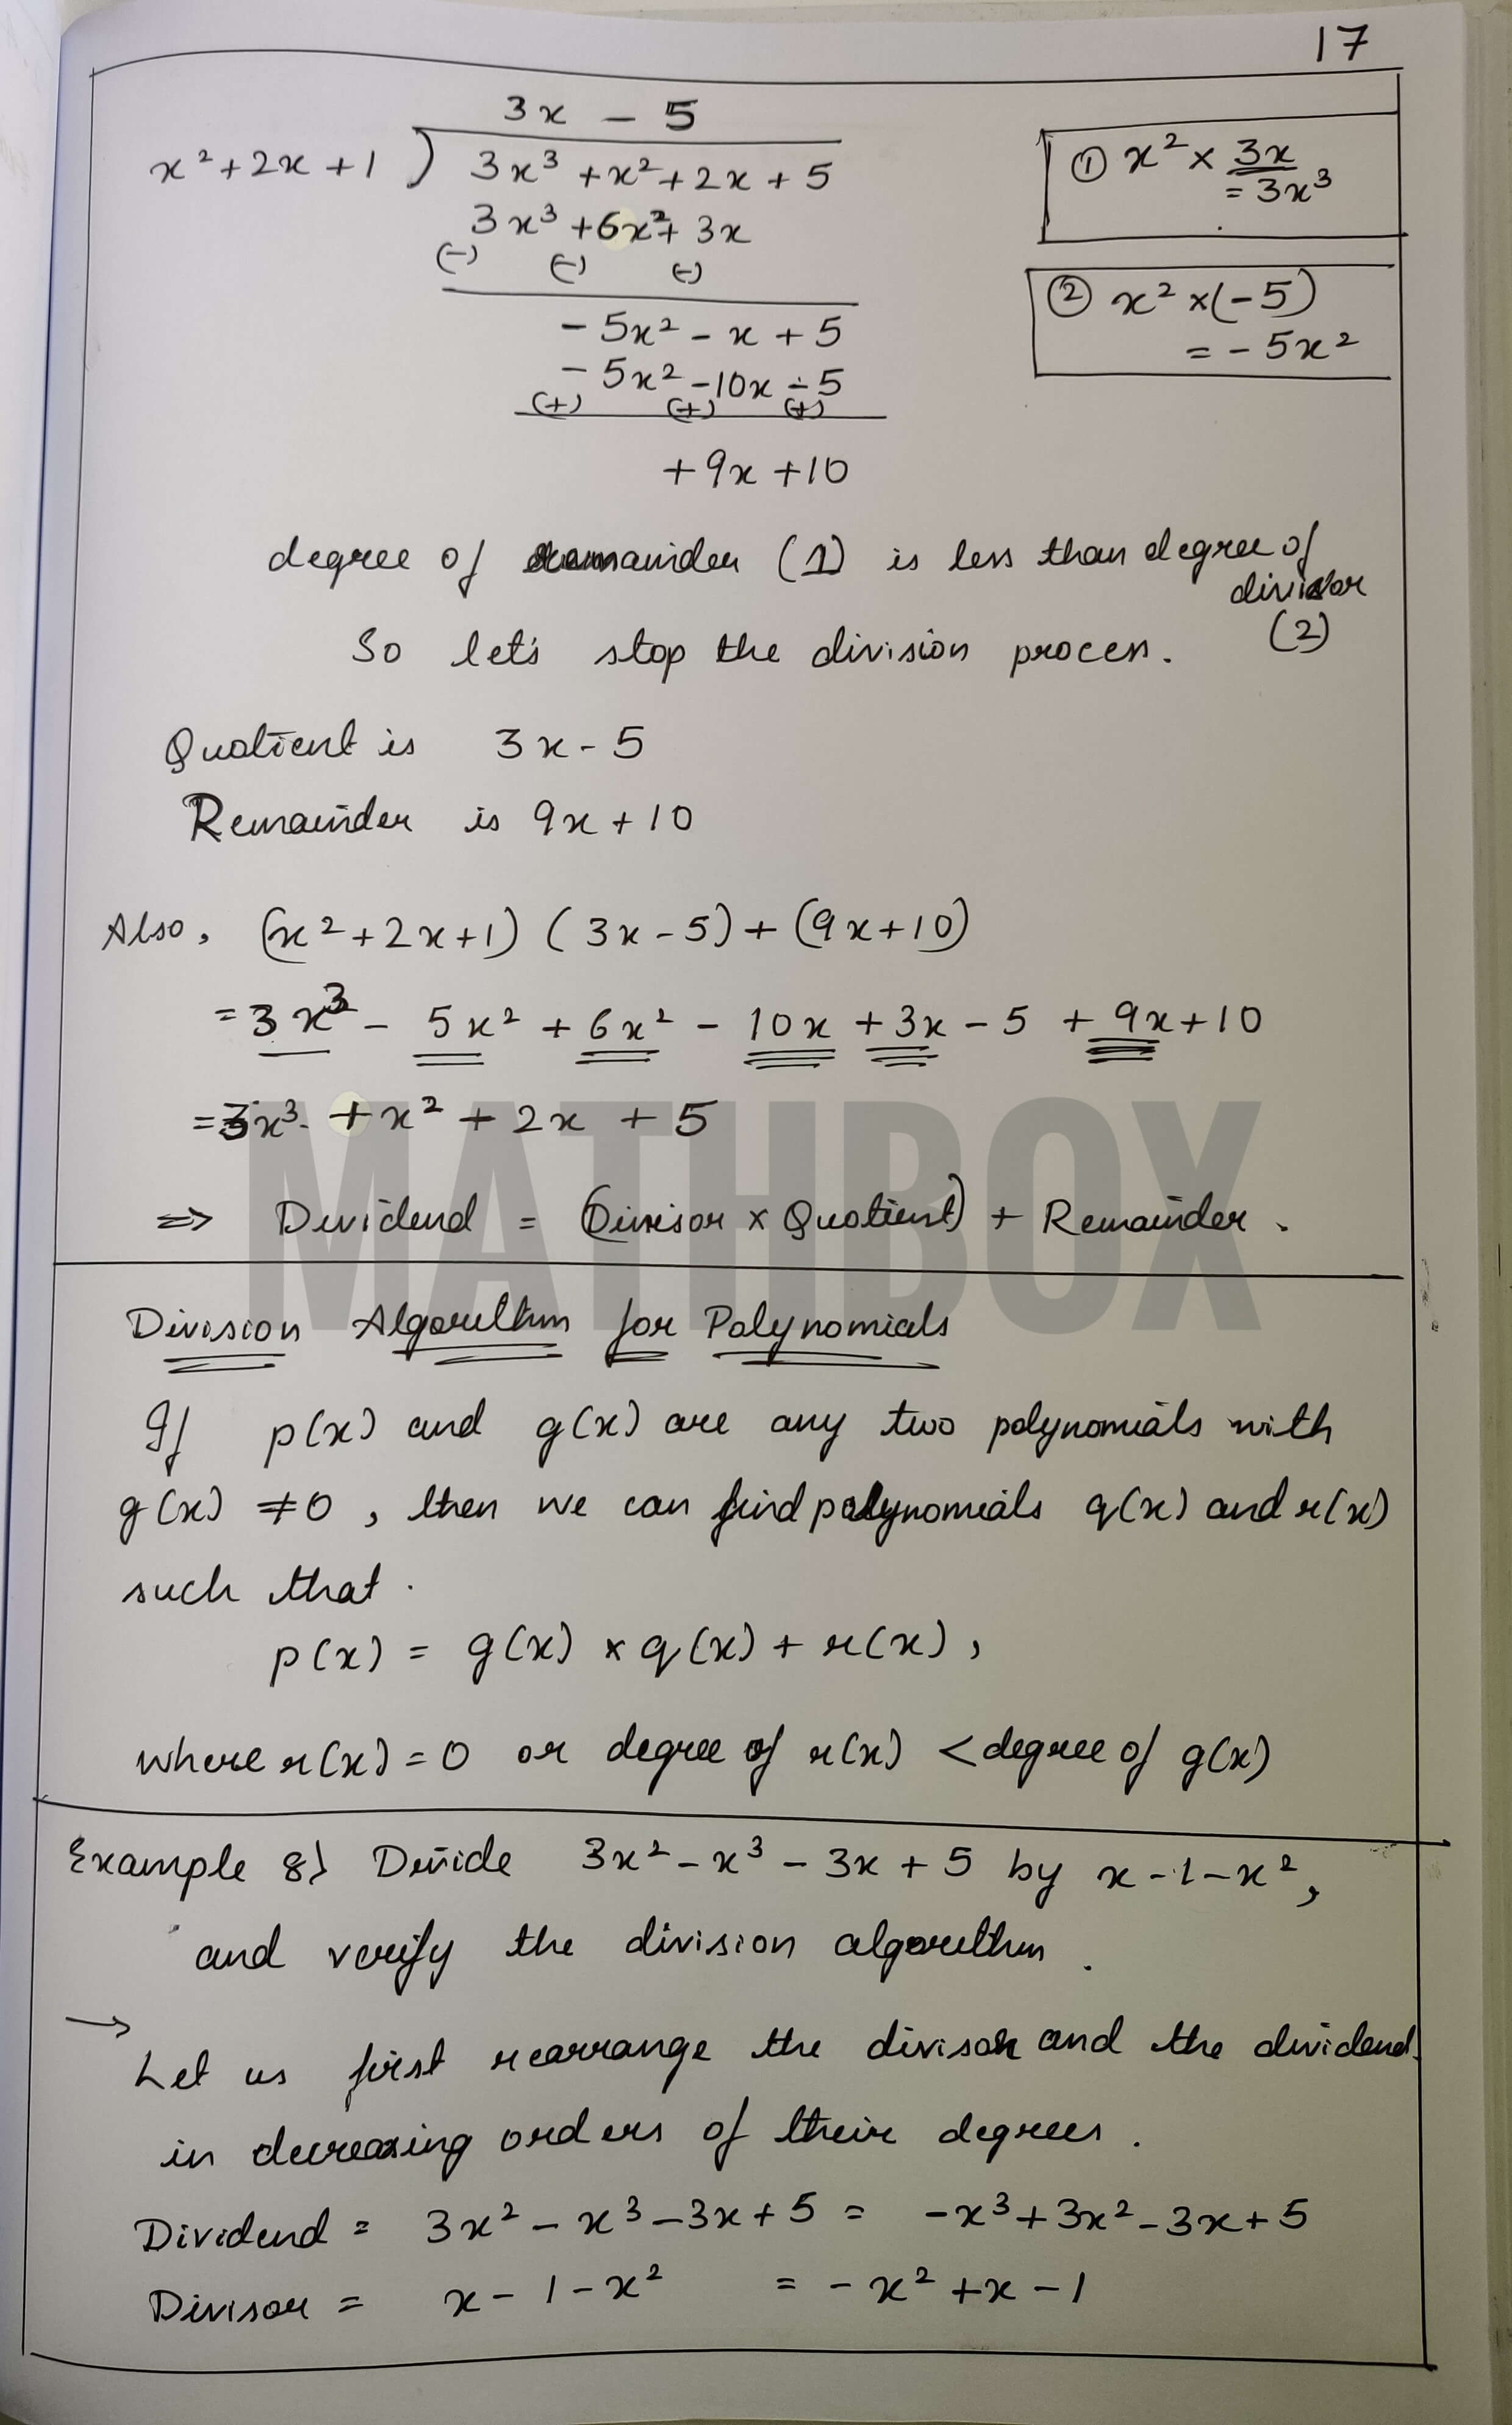 17
3x - 5
x²+2x+1 ) 3x³ +x²+2x+5
3x³ +6x²+ 3x
(-) (-) (-)
-5x² - x + 5
-5x² -10x -5
(+) (+) (+)
+9x +10
① x² × 3x
= 3x³
② x² ×(-5)
= -5x²
degree of remainder (1) is less than degree of
divisor
(2)
So let's stop the division process.
Quotient is 3x - 5
Remainder is 9x+10
Also, (x²+2x+1) (3x-5)+(9x+10)
=3x³ - 5x² +6x² - 10x +3x - 5 + 9x+10
=3x³ + x² + 2x + 5
⇒ Dividend = (Divisor × Quotient) + Remainder.
MATHBOX
Division Algorithm for Polynomials
If p(x) and g(x) are any two polynomials with
g(x) ≠0, then we can find polynomials q(x) and r(x)
such that.
p(x) = g(x) × q(x) + r(x),
where r(x)=0 or degree of r(x) < degree of g(x)
Example 8) Divide 3x²-x³-3x+5 by x-1-x²,
and verify the division algorithm.
→
Let us first rearrange the divisor and the dividend
in decreasing orders of their degrees.
Dividend = 3x²-x³-3x+5 = -x³+3x²-3x+5
Divisor = x-1-x² = -x²+x-1